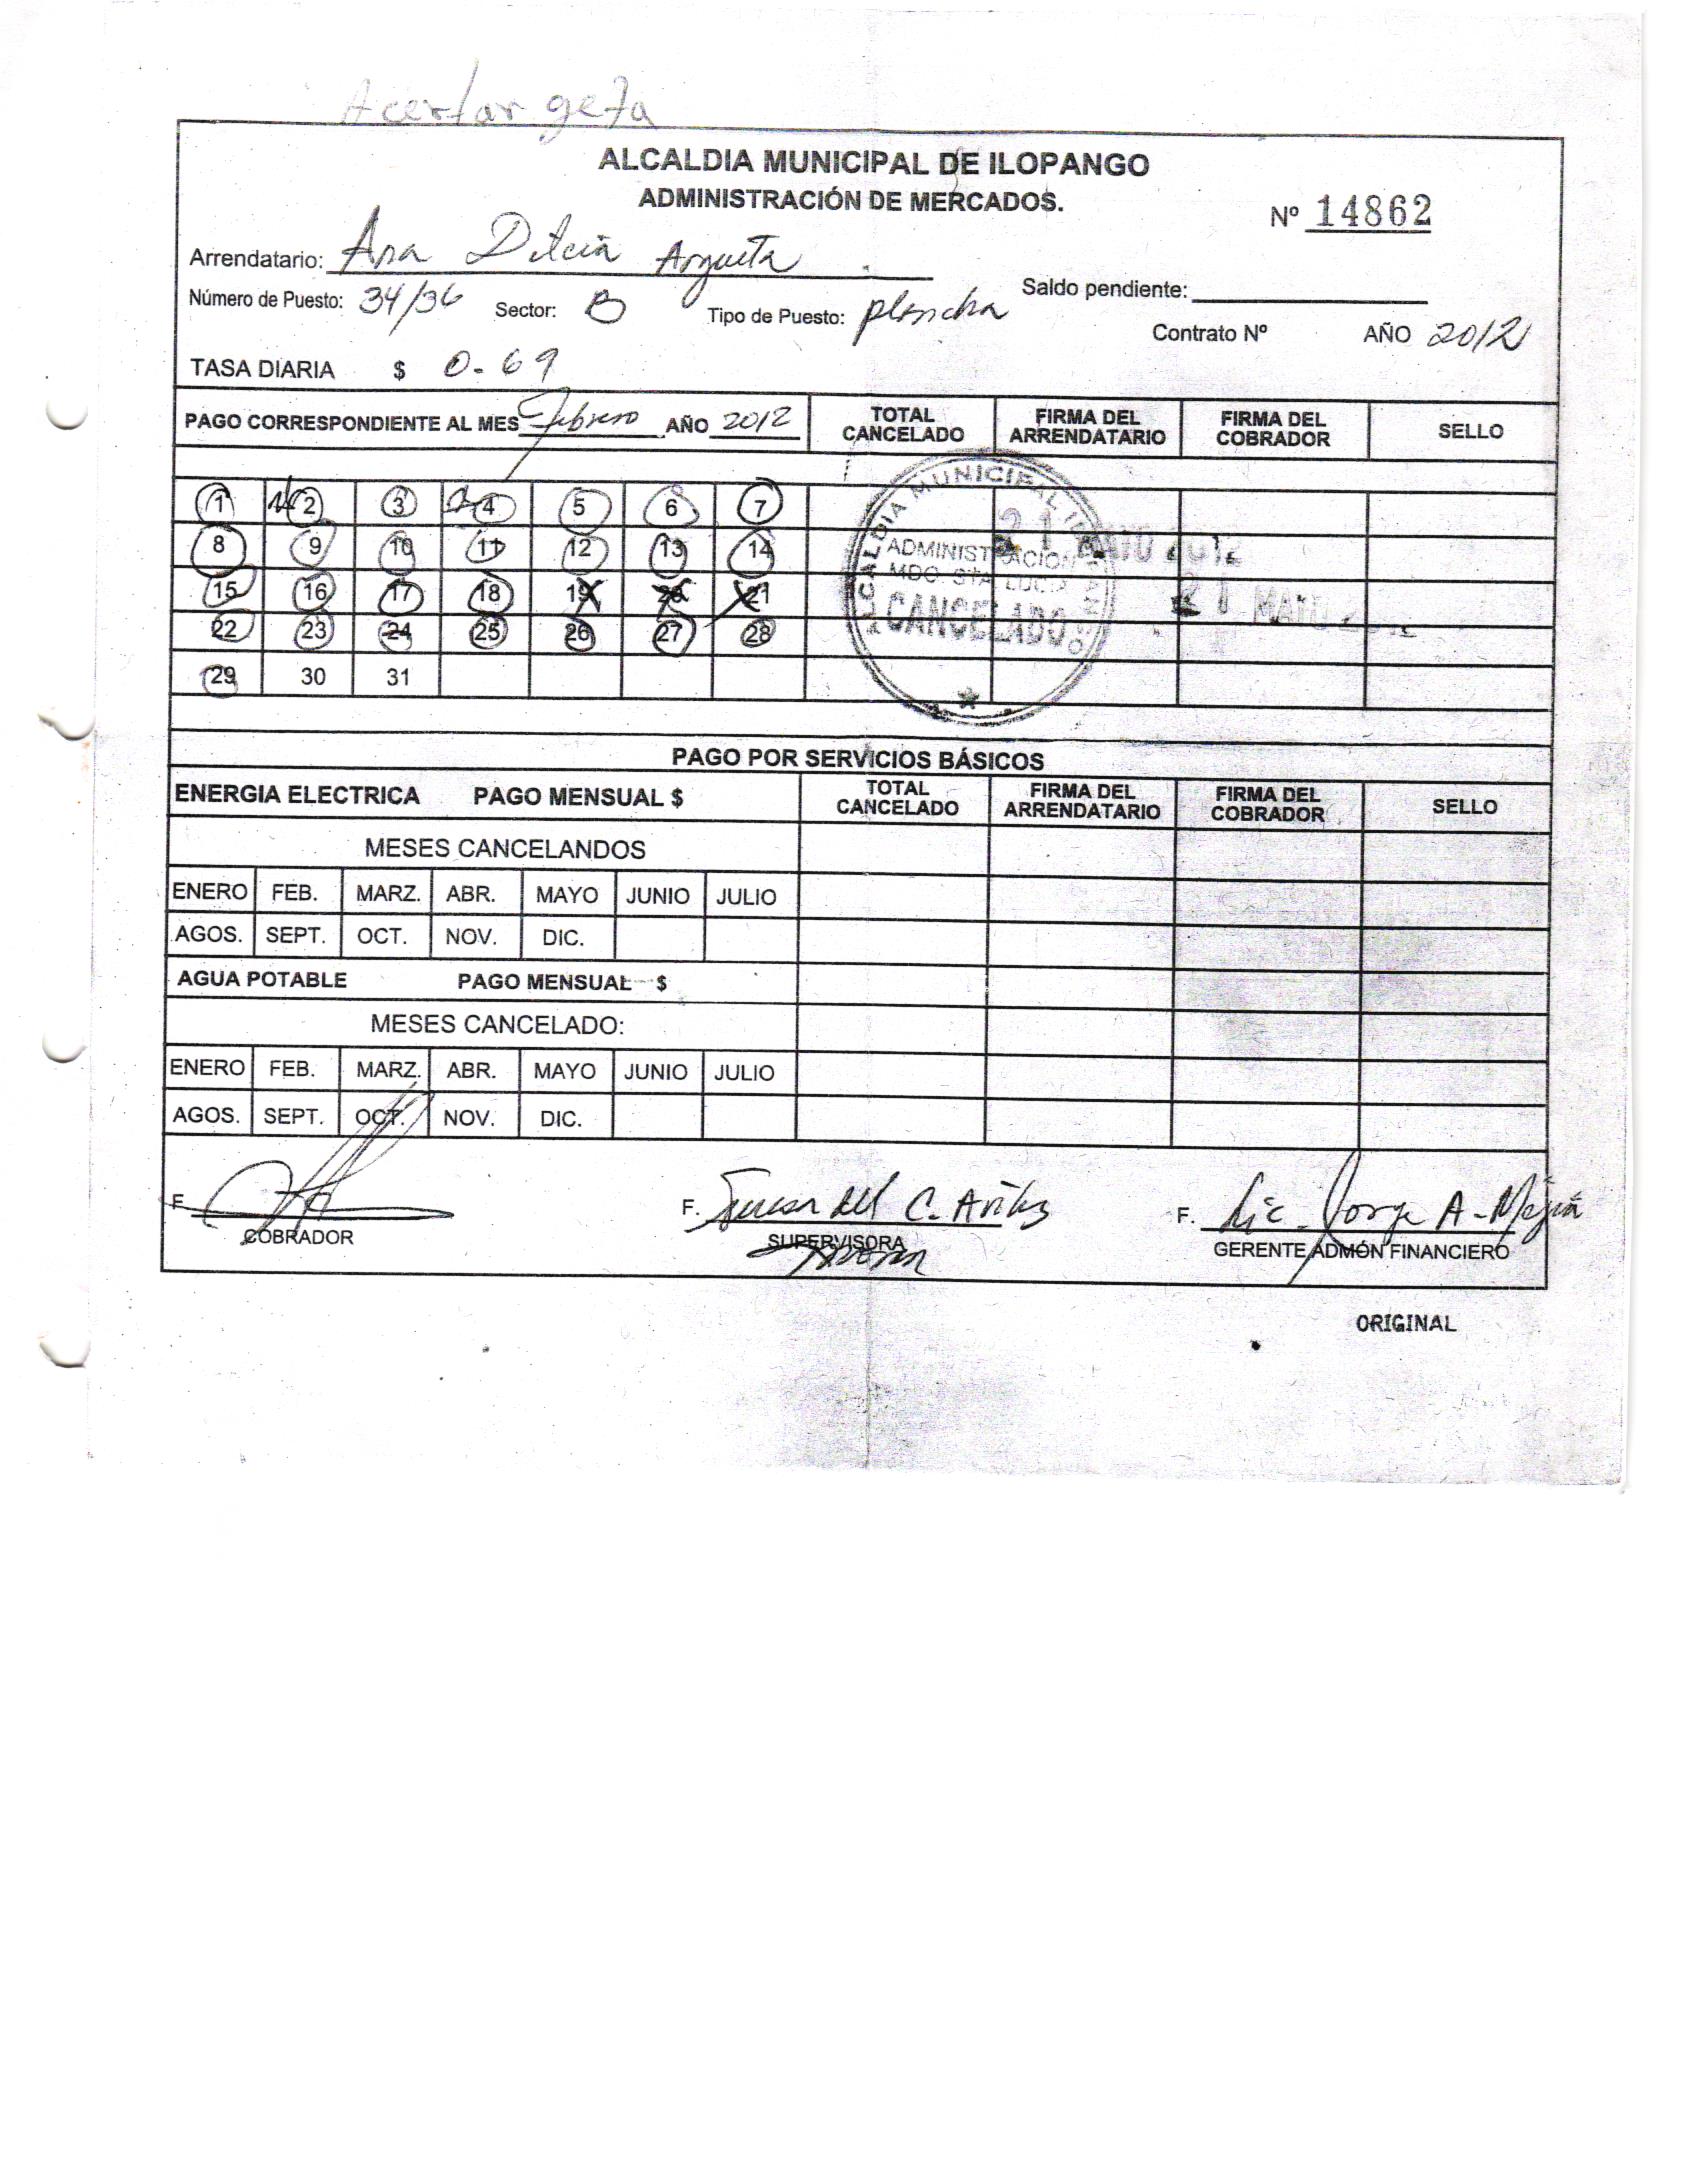 Acertar geta
ALCALDIA MUNICIPAL DE ILOPANGO
ADMINISTRACIÓN DE MERCADOS.
Nº 14862
Arrendatario: Ana Dilcia Argueta
Saldo pendiente:
Número de Puesto: 34/36 Sector: B Tipo de Puesto: plancha
Contrato Nº AÑO 2012
TASA DIARIA $ 0.69
PAGO CORRESPONDIENTE AL MES Febrero AÑO 2012 TOTAL CANCELADO FIRMA DEL ARRENDATARIO FIRMA DEL COBRADOR SELLO
1 2 3 4 5 6 7
8 9 10 11 12 13 14
15 16 17 18 19 20 21
22 23 24 25 26 27 28
29 30 31
ALCALDIA MUNICIPAL
ADMINISTRACION
MDO. STA LUCIA
CANCELADO
21 MAYO 2012
21 MAYO
PAGO POR SERVICIOS BÁSICOS
ENERGIA ELECTRICA PAGO MENSUAL $ TOTAL CANCELADO FIRMA DEL ARRENDATARIO FIRMA DEL COBRADOR SELLO
MESES CANCELANDOS
ENERO FEB. MARZ. ABR. MAYO JUNIO JULIO
AGOS. SEPT. OCT. NOV. DIC.
AGUA POTABLE PAGO MENSUAL $
MESES CANCELADO:
ENERO FEB. MARZ. ABR. MAYO JUNIO JULIO
AGOS. SEPT. OCT. NOV. DIC.
F. F. Teresa del C. Avilez F. Lic. Jorge A. Mejía
COBRADOR SUPERVISORA GERENTE ADMÓN FINANCIERO
ORIGINAL